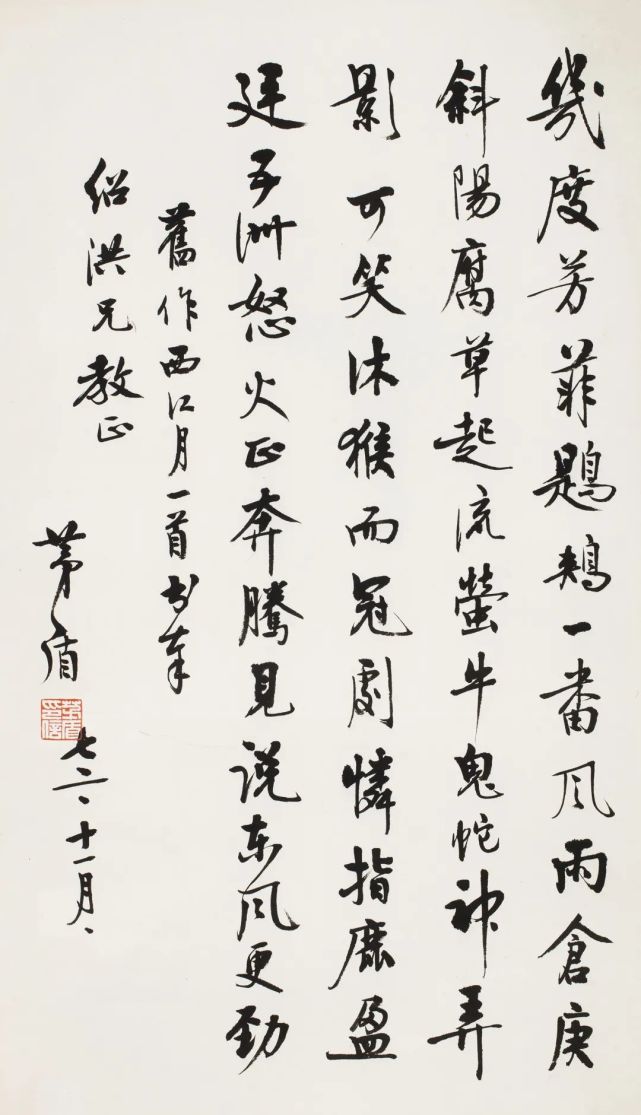 幾度芳菲鶗鴂一番風雨倉庚
斜陽腐草起流螢牛鬼蛇神弄
影可笑沐猴而冠劇憐指鹿盈
廷五洲怒火正奔騰見说东風更勁
舊作西江月一首书奉
绍洪兄教正
茅盾
七二、十一月、
茅盾印信